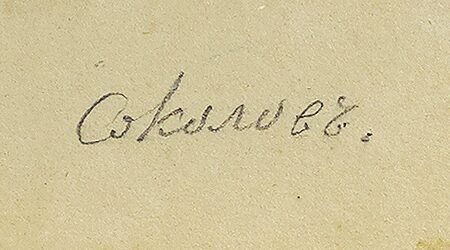 Соколовъ.